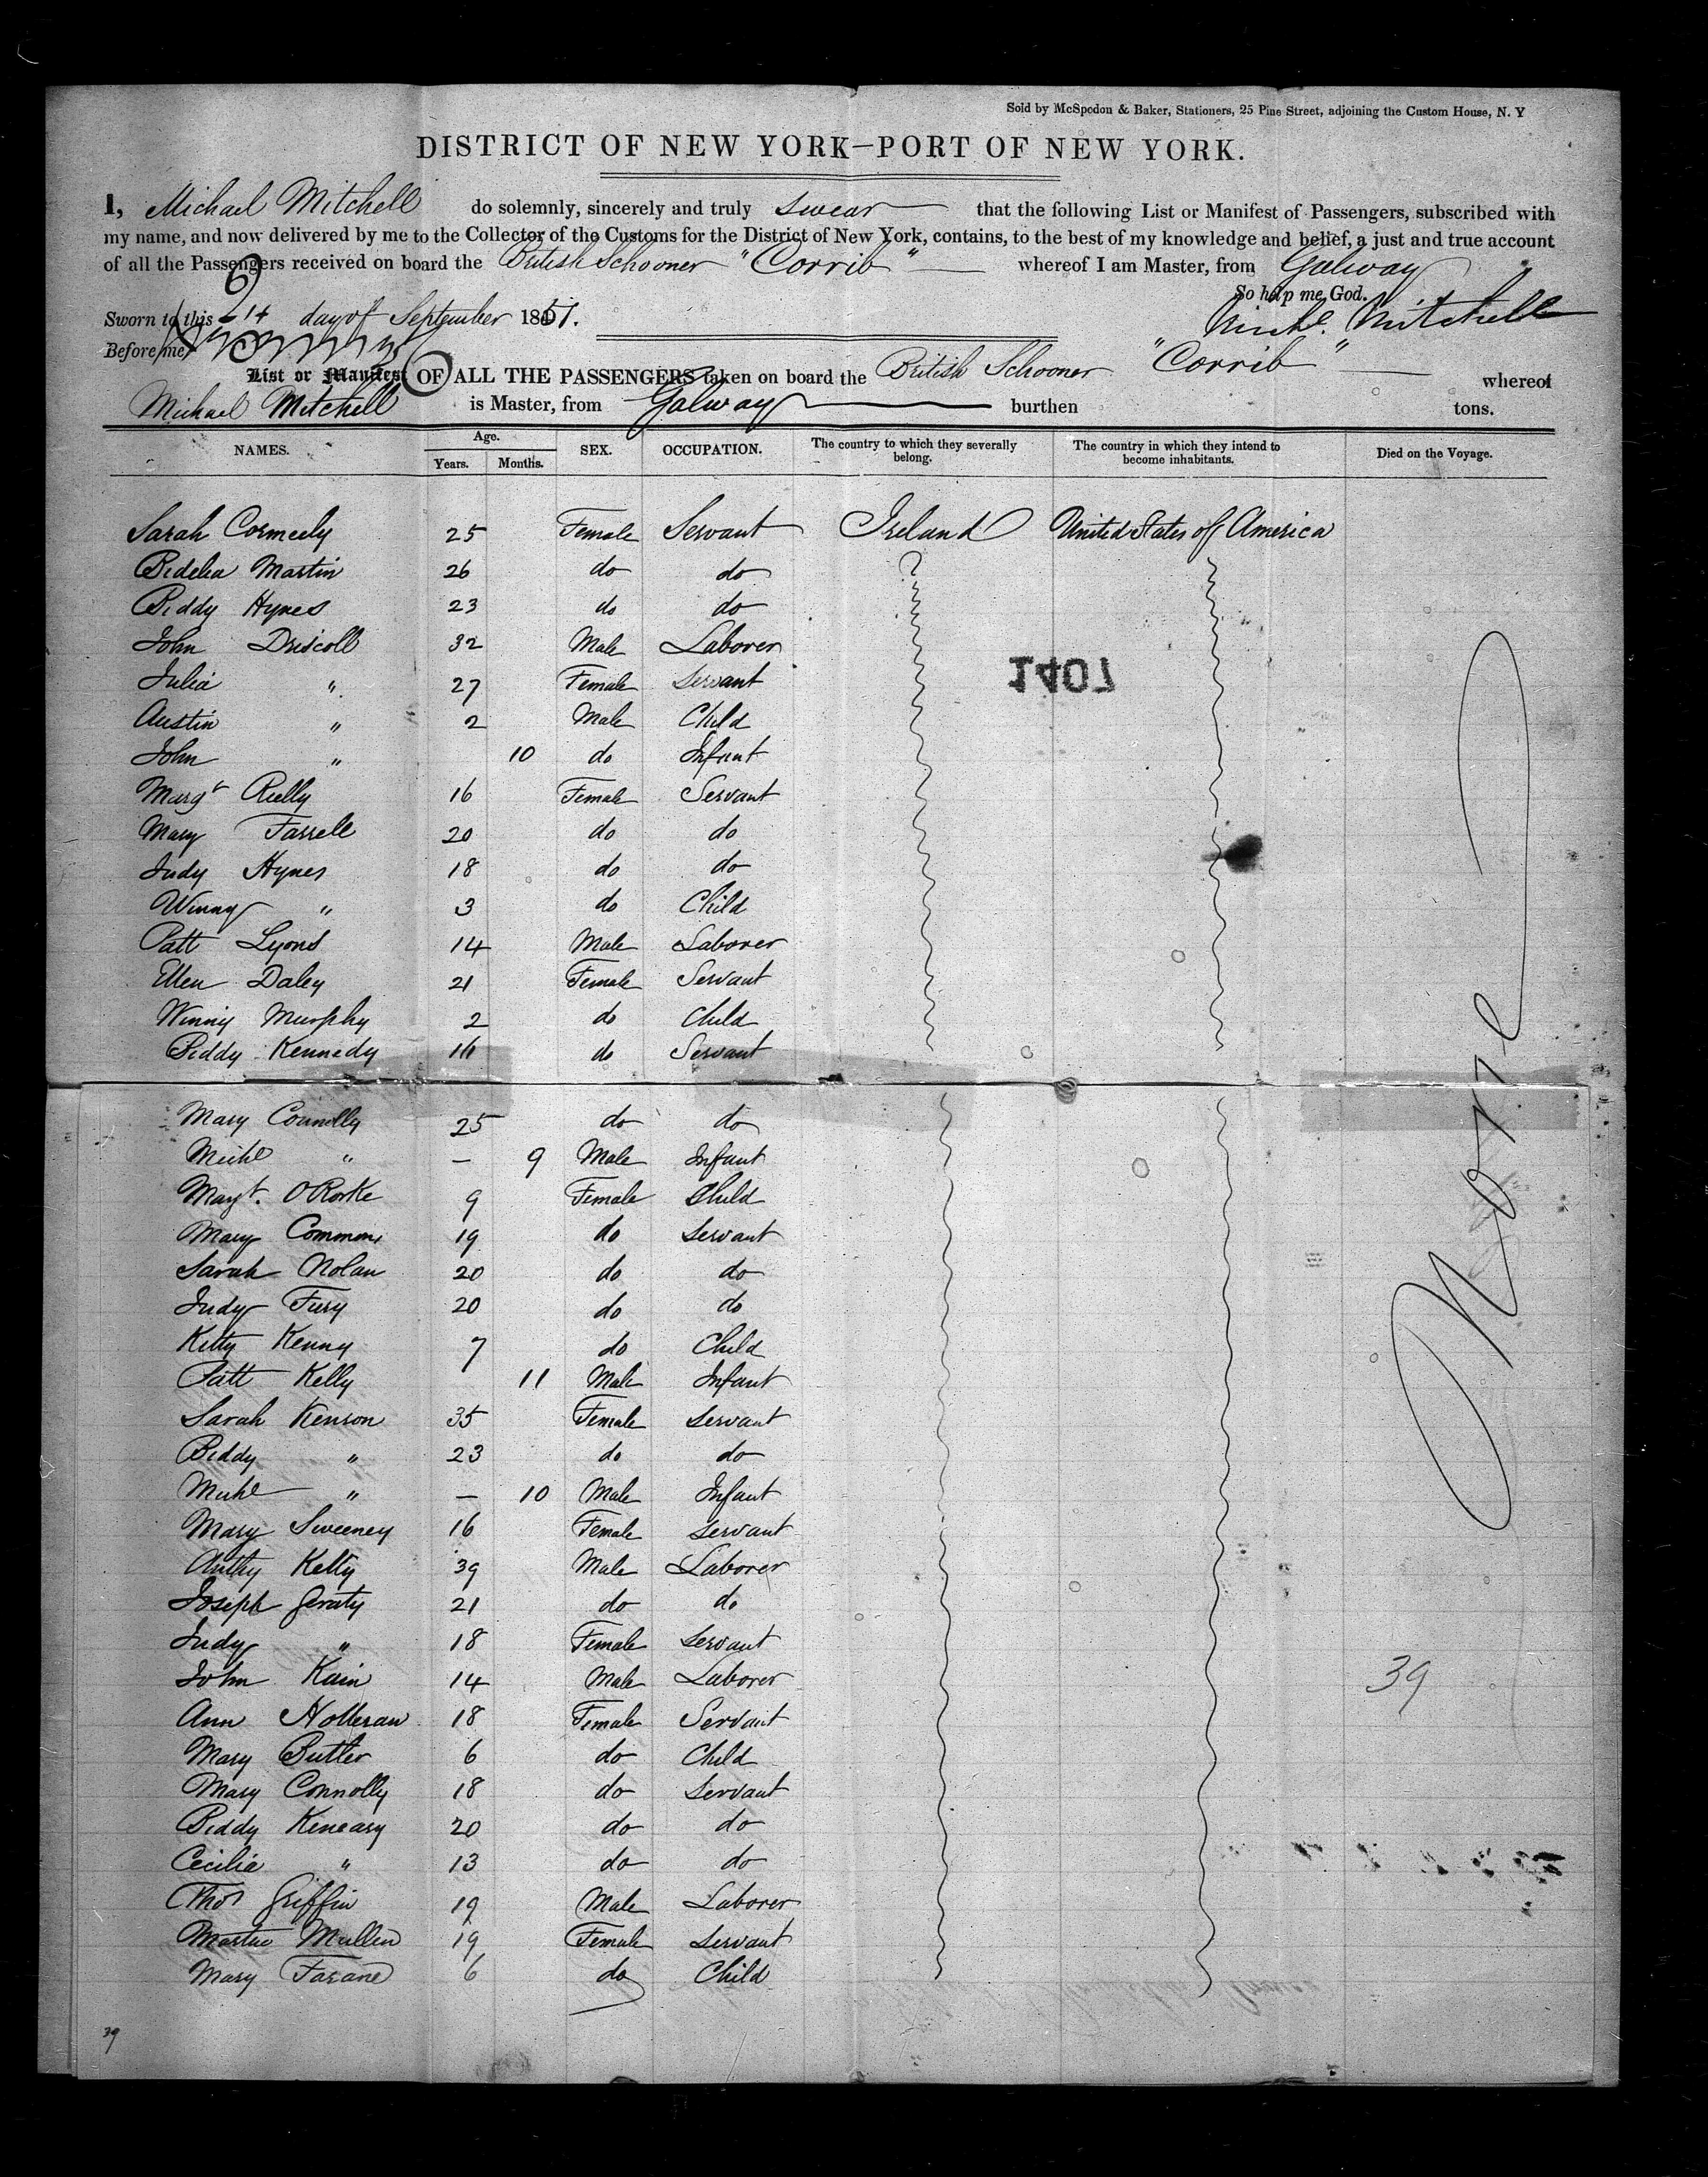 Sold by McSpedon & Baker, Stationers, 25 Pine Street, adjoining the Custom House, N. Y
DISTRICT OF NEW YORK—PORT OF NEW YORK.
I, Michael Mitchell do solemnly, sincerely and truly swear that the following List or Manifest of Passengers, subscribed with
my name, and now delivered by me to the Collector of the Customs for the District of New York, contains, to the best of my knowledge and belief, a just and true account
of all the Passengers received on board the British Schooner "Corrib" whereof I am Master, from Galway
So help me God.
Sworn to this day of September 1851. Michl. Mitchell
Before me
List or Manifest OF ALL THE PASSENGERS taken on board the British Schooner "Corrib" whereof
Michael Mitchell is Master, from Galway burthen tons.
NAMES. Age. Years. Months. SEX. OCCUPATION. The country to which they severally belong. The country in which they intend to become inhabitants. Died on the Voyage.
Sarah Cormeely 25 Female Servant Ireland United States of America
Bidelia Martin 26 do do
Biddy Hynes 23 do do
John Driscoll 32 Male Laborer
1407
Julia " 27 Female Servant
Austin " 2 Male Child
John " 10 do Infant
Margt Rielly 16 Female Servant
Mary Farrell 20 do do
Judy Hynes 18 do do
Winny " 3 do Child
Patt Lyons 14 Male Laborer
Ellen Daley 21 Female Servant
Winny Murphy 2 do Child
Biddy Kennedy 16 do Servant
None
Mary Connolly 25 do do
Michl " — 9 Male Infant
Margt. ORorke 9 Female Child
Mary Commons 19 do Servant
Sarah Nolan 20 do do
Judy Fury 20 do do
Kitty Kenny 7 do Child
Patt Kelly 11 Male Infant
Sarah Kenson 35 Female Servant
Biddy " 23 do do
Michl " — 10 Male Infant
Mary Sweeney 16 Female Servant
Anthy Kelly 39 Male Laborer
Joseph Geraty 21 do do
Judy " 18 Female Servant
John Kain 14 Male Laborer
39
Ann Holleran 18 Female Servant
Mary Butler 6 do Child
Mary Connolly 18 do Servant
Biddy Keneasy 20 do do
Cecilia " 13 do do
Thos Griffin 19 Male Laborer
Mullen 19 Female Servant
Mary Farane 6 do Child
39